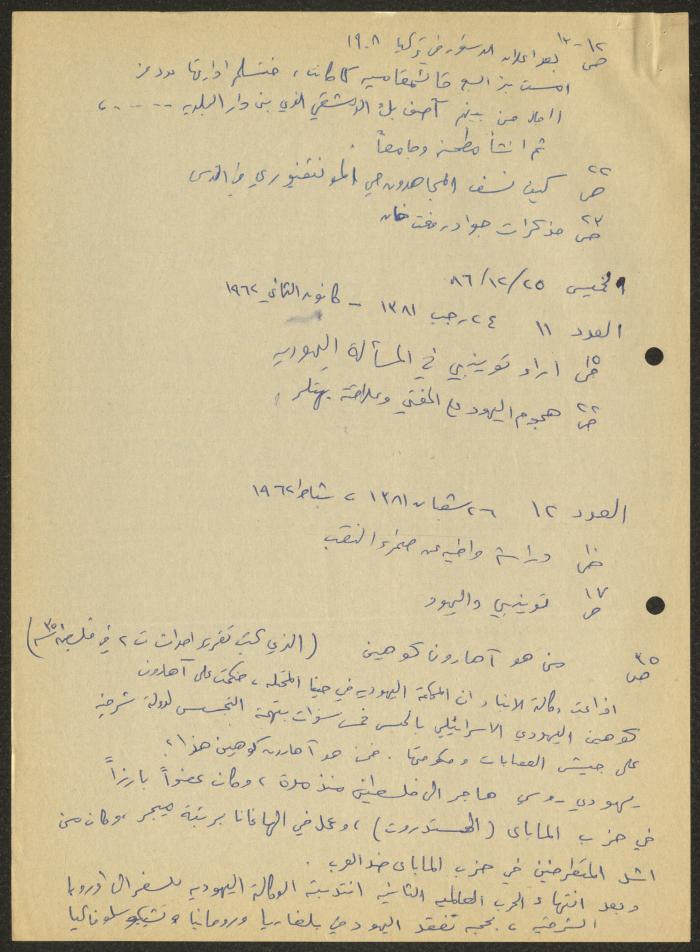 ص ١٢-١٣ بعد اعلان الدستور في تركيا ١٩٠٨
امست بئر السبع قائمقامية كما كانت ، فتسلم ادارتها عدد من
رجال من بينهم آصف بك الدمشقي الذي بنى دار البلدية ...... ،
ثم انشأ مطحنة وجامعاً .
ص ٢٢ كيف نسف المجاهدون حي المونتفيوري في القدس
ص ٢٣ مذكرات جواد رفعت خان
الخميس ٨٦/١٢/٢٥
العدد ١١ ٢٤ رجب ١٣٨١ - كانون الثاني ١٩٦٢
ص ١٥ اراء توينبي في المسألة اليهودية
ص ٢٢ هجوم اليهود على المفتي وعلاقته بهتلر
العدد ١٢ ٢٦ شعبان ١٣٨١ ، شباط ١٩٦٢
ص ١٠ دراسة وافية عن صحراء النقب
ص ١٧ توينبي واليهود
ص ٣٥ من هو آهارون كوهين (الذي كتب تقرير احداث في فلسطين)
اذاعت وكالة الانباء ان المحكمة اليهودية في حيفا المحتلة ، حكمت على آهارون
كوهين اليهودي الاسرائيلي بالحبس خمس سنوات بتهمة التجسس لدولة شرقية
على جيش العصابات وحكومتها . فمن هو آهارون كوهين هذا ؟
يهودي روسي هاجر الى فلسطين منذ مدة ، وكان عضواً بارزاً
في حزب الماباى (الهستدروت) ، وعمل في الهاغانا برتبة ميجر ، وكان من
اشد المتطرفين في حزب الماباى ضد العرب .
وبعد انتهاء الحرب العالمية الثانية انتدبته الوكالة اليهودية للسفر الى اوروبا
الشرقية ، بحجة تفقد اليهود في بلغاريا ورومانيا وتشيكوسلوفاكيا